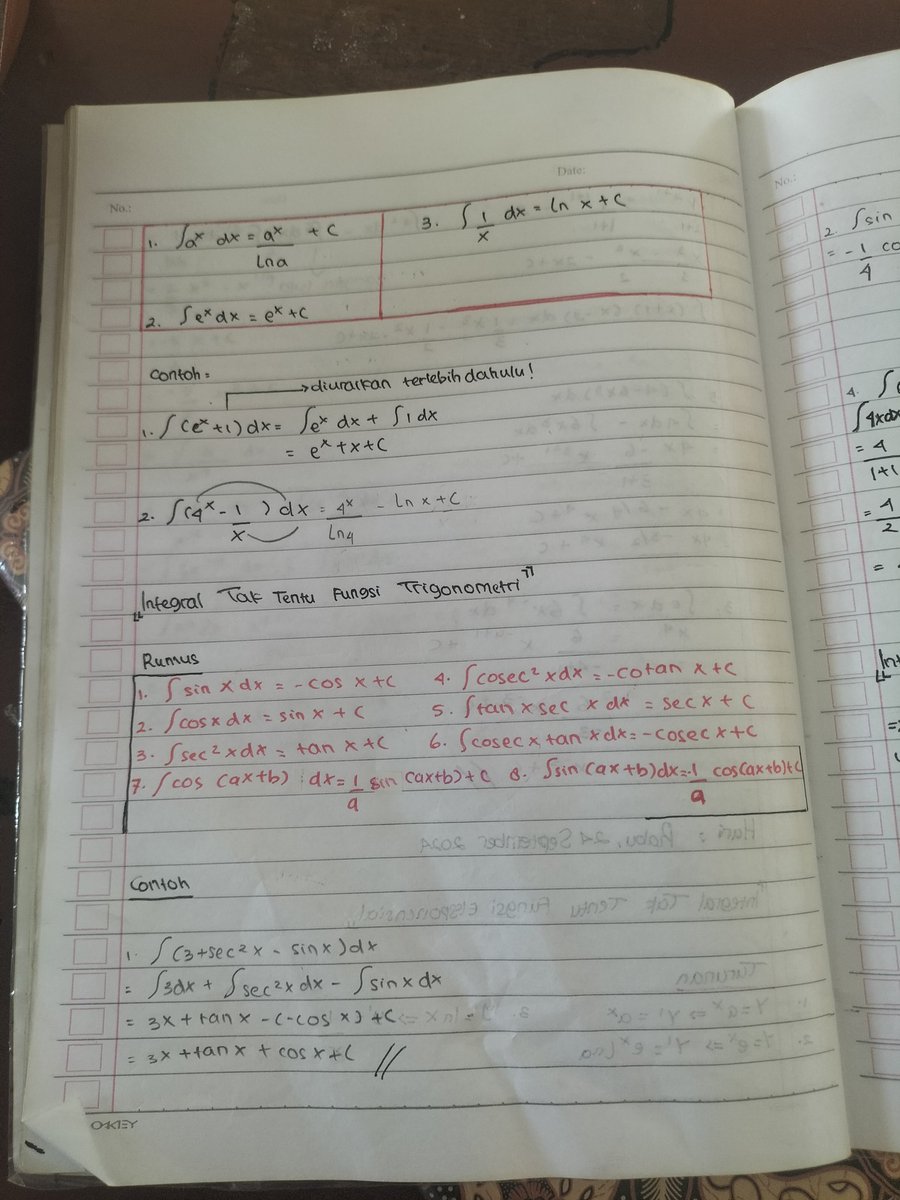 No.:
Date:
1. ∫aˣ dx = aˣ/ln a + C
3. ∫1/x dx = ln x + C
2. ∫eˣ dx = eˣ + C
Contoh =
→ diuraikan terlebih dahulu!
1. ∫(eˣ + 1) dx = ∫eˣ dx + ∫1 dx
= eˣ + x + C
2. ∫(4ˣ - 1/x) dx = 4ˣ/ln 4 - ln x + C
"Integral Tak Tentu Fungsi Trigonometri"
Rumus
1. ∫sin x dx = -cos x + C
4. ∫cosec² x dx = -cotan x + C
2. ∫cos x dx = sin x + C
5. ∫tan x sec x dx = sec x + C
3. ∫sec² x dx = tan x + C
6. ∫cosec x, tan x dx = -cosec x + C
7. ∫cos (ax+b) dx = 1/a sin (ax+b) + C
8. ∫sin (ax+b) dx = -1/a cos(ax+b) + C
Contoh
1. ∫(3 + sec² x - sin x) dx
= ∫3dx + ∫sec² x dx - ∫sin x dx
= 3x + tan x - (-cos x) + C
= 3x + tan x + cos x + C //
O-KEY
No.:
2. ∫sin
= -1/4 co
4. ∫
∫4x dx
= 4/1+1
= 4/2
=
"Int